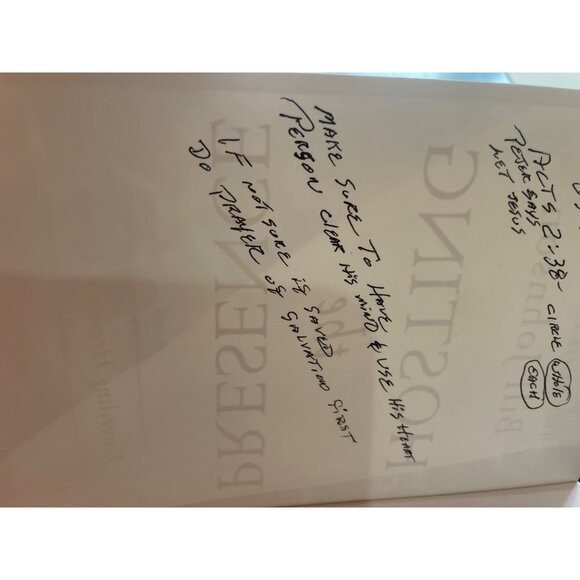 ACTS 2:38- CIRCLE WHOLE
EACH
PETER SAYS
NET JESUS
MAKE SURE TO HAVE
PERSON CLEAR HIS MIND & USE HIS HEART
IF NOT SURE is SAVED
DO PRAYER OF SALVATION FIRST
HOSTING
the
PRESENCE